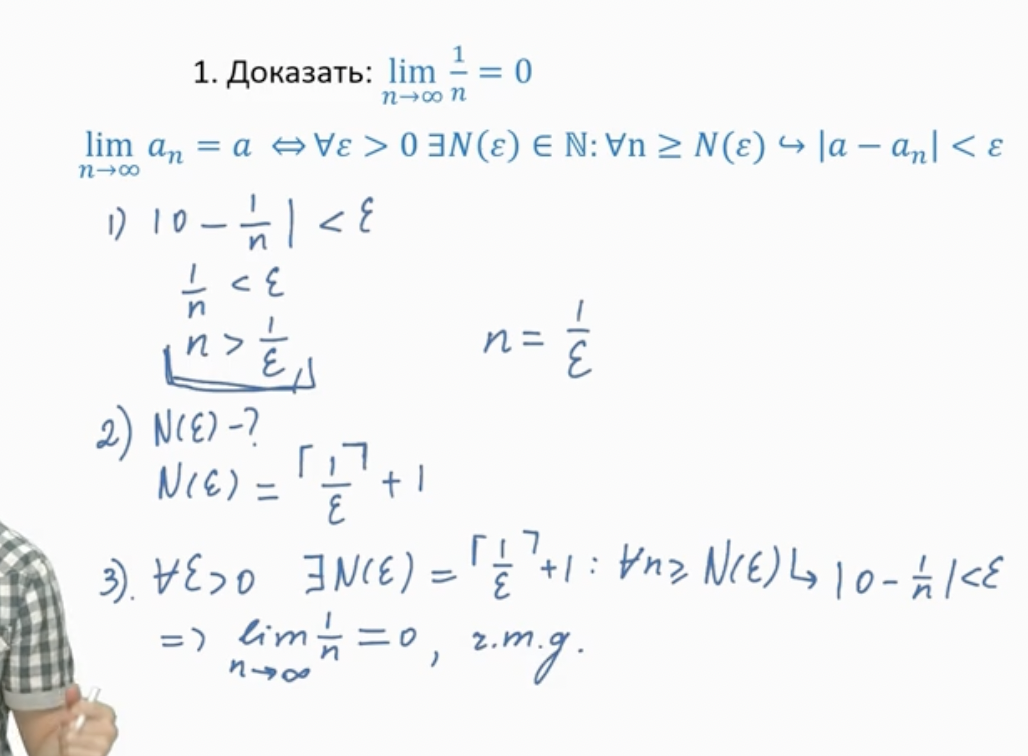 1. Доказать: lim n→∞ 1/n = 0
lim n→∞ aₙ = a ⇔ ∀ε > 0 ∃N(ε) ∈ ℕ: ∀n ≥ N(ε) ↪ |a − aₙ| < ε
1) |0 − 1/n| < ε
1/n < ε
n > 1/ε
n = 1/ε
2) N(ε) − ?
N(ε) = ⌈1/ε⌉ + 1
3). ∀ε > 0 ∃N(ε) = ⌈1/ε⌉ + 1 : ∀n ≥ N(ε) ↪ |0 − 1/n| < ε
=> lim n→∞ 1/n = 0, ч.т.д.